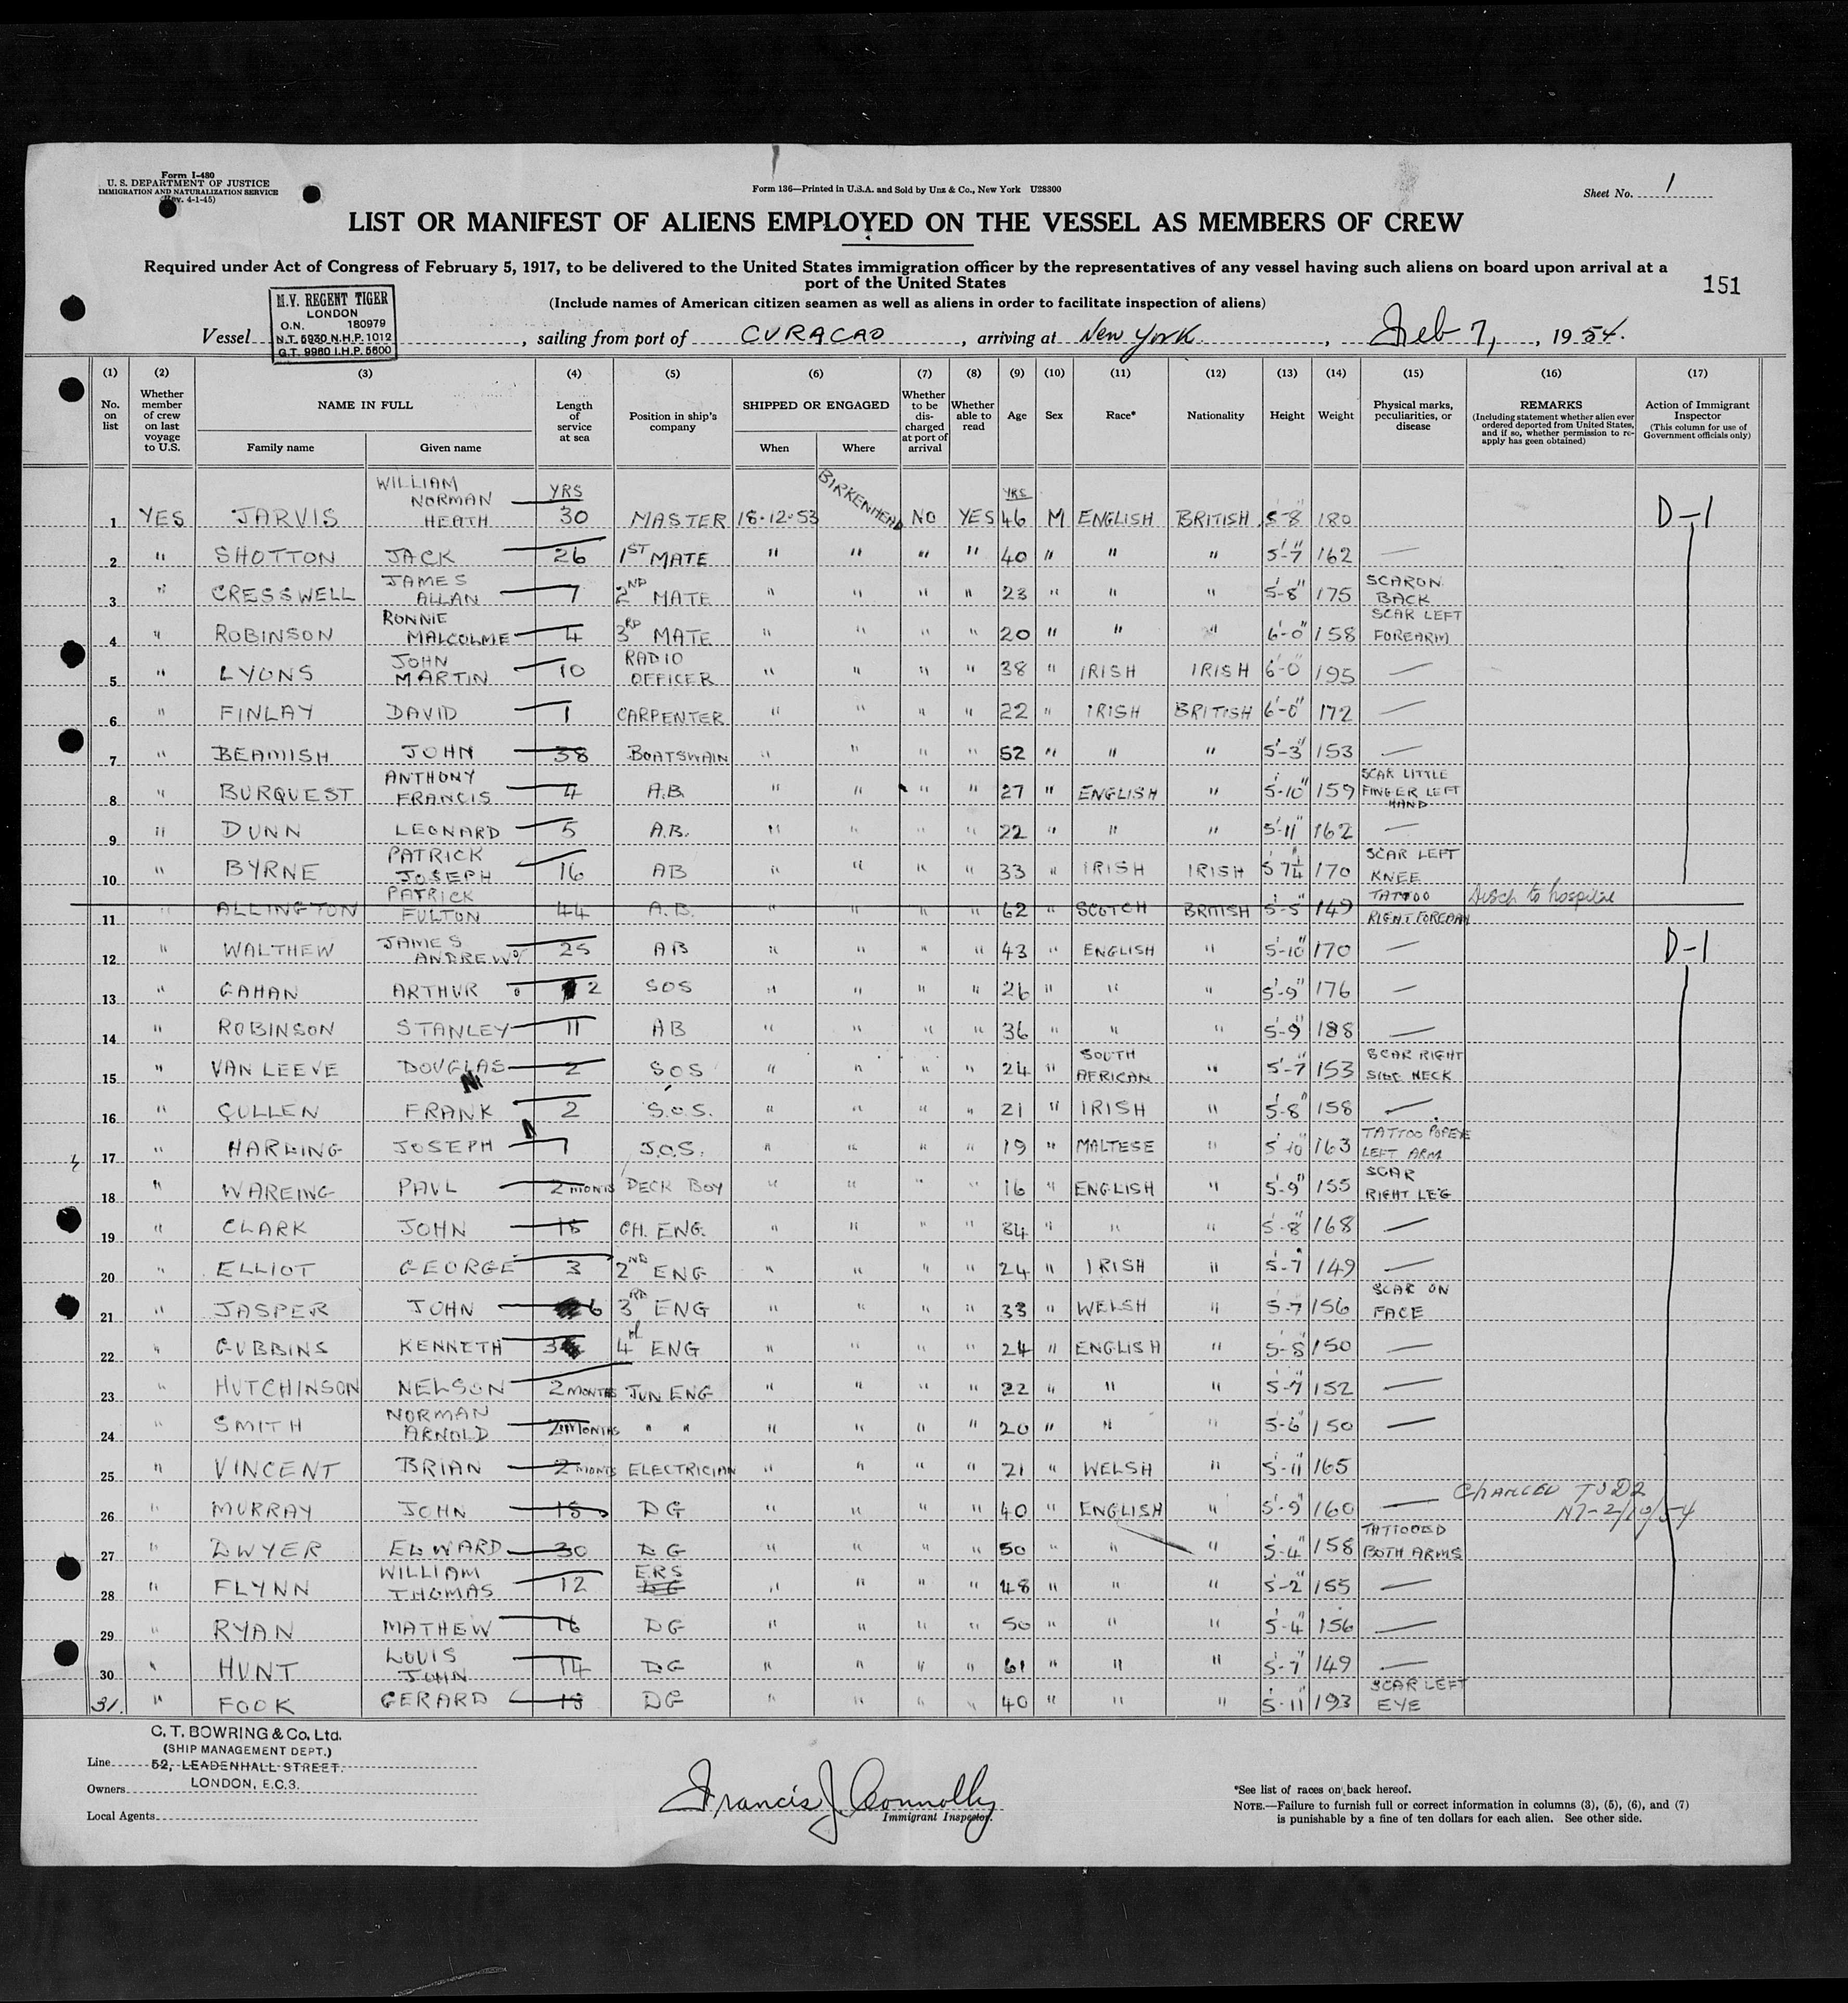 Form I-480
U. S. DEPARTMENT OF JUSTICE
IMMIGRATION AND NATURALIZATION SERVICE
(Rev. 4-1-45)
Form 136—Printed in U.S.A. and Sold by Unz & Co., New York U28300
Sheet No. 1
LIST OR MANIFEST OF ALIENS EMPLOYED ON THE VESSEL AS MEMBERS OF CREW
Required under Act of Congress of February 5, 1917, to be delivered to the United States immigration officer by the representatives of any vessel having such aliens on board upon arrival at a
port of the United States
151
(Include names of American citizen seamen as well as aliens in order to facilitate inspection of aliens)
M.V. REGENT TIGER
LONDON
O.N. 180979
N.T. 5930 N.H.P. 1012
G.T. 9960 I.H.P. 5600
Vessel , sailing from port of CURACAO , arriving at New York , Feb 7, , 1954.
(1) (2) (3) (4) (5) (6) (7) (8) (9) (10) (11) (12) (13) (14) (15) (16) (17)
No. on list
Whether member of crew on last voyage to U.S.
NAME IN FULL
Family name Given name
Length of service at sea
Position in ship's company
SHIPPED OR ENGAGED
When Where
Whether to be discharged at port of arrival
Whether able to read
Age
Sex
Race*
Nationality
Height
Weight
Physical marks, peculiarities, or disease
REMARKS
(Including statement whether alien ever ordered deported from United States, and if so, whether permission to re-apply has geen obtained)
Action of Immigrant Inspector
(This column for use of Government officials only)
YRS YRS
1 YES JARVIS WILLIAM NORMAN HEATH 30 MASTER 18-12-53 BIRKENHEAD NO YES 46 M ENGLISH BRITISH 5-8 180 D-1
2 " SHOTTON JACK 26 1ST MATE " " " " 40 " " " 5'-7" 162 —
3 " CRESSWELL JAMES ALLAN 7 2ND MATE " " " " 23 " " " 5'-8" 175 SCAR ON BACK
4 " ROBINSON RONNIE MALCOLME 4 3RD MATE " " " " 20 " " " 6'-0" 158 SCAR LEFT FOREARM
5 " LYONS JOHN MARTIN 10 RADIO OFFICER " " " " 38 " IRISH IRISH 6'-0" 195 —
6 " FINLAY DAVID 1 CARPENTER " " " " 22 " IRISH BRITISH 6'-0" 172 —
7 " BEAMISH JOHN 38 BOATSWAIN " " " 52 " " " 5'-3" 153 —
8 " BURQUEST ANTHONY FRANCIS 4 A.B. " " " " 27 " ENGLISH " 5'-10" 159 SCAR LITTLE FINGER LEFT HAND
9 " DUNN LEONARD 5 A.B. " " " " 22 " " " 5'-11" 162 —
10 " BYRNE PATRICK JOSEPH 16 AB " " " " 33 " IRISH IRISH 5 7¼ 170 SCAR LEFT KNEE
11 " ALLINGTON PATRICK FULTON 44 A.B. " " " " 62 " SCOTCH BRITISH 5'-5" 149 TATTOO RIGHT FOREARM Disch to hospital
12 " WALTHEW JAMES ANDREW 25 AB " " " 43 " ENGLISH " 5'-10" 170 — D-1
13 " GAHAN ARTHUR 2 SOS " " " " 26 " " " 5'-9" 176 —
14 " ROBINSON STANLEY 11 AB " " " " 36 " " " 5'-9" 188 —
15 " VAN LEEVE DOUGLAS 2 SOS " " " " 24 " SOUTH AFRICAN " 5'-7" 153 SCAR RIGHT SIDE NECK
16 " CULLEN FRANK 2 S.O.S. " " " " 21 " IRISH " 5'-8" 158 —
17 " HARDING JOSEPH 1 J.O.S. " " " " 19 " MALTESE " 5'10" 163 TATTOO POPEYE LEFT ARM
18 " WAREING PAUL 2 MONTS DECK BOY " " " " 16 " ENGLISH " 5'-9" 155 SCAR RIGHT LEG
19 " CLARK JOHN 15 CH. ENG. " " " " 34 " " " 5'-8" 168 —
20 " ELLIOT GEORGE 3 2ND ENG " " " " 24 " IRISH " 5-7 149 —
21 " JASPER JOHN 6 3RD ENG " " " " 33 " WELSH " 5-7 156 SCAR ON FACE
22 " GUBBINS KENNETH 3 4H ENG " " " " 24 " ENGLISH " 5-8 150 —
23 " HUTCHINSON NELSON 2 MONTHS JUN ENG " " " " 22 " " " 5-7 152 —
24 " SMITH NORMAN ARNOLD 2 MONTHS " " " " " " 20 " " " 5-6 150 —
25 " VINCENT BRIAN 2 MONTS ELECTRICIAN " " " " 21 " WELSH " 5'-11" 165
26 " MURRAY JOHN 15 DG " " " " 40 " ENGLISH " 5'-9" 160 — CHANGED TO D2 NY-2/10/54
27 " DWYER EDWARD 30 DG " " " " 50 " " " 5-4 158 TATTOOED BOTH ARMS
28 " FLYNN WILLIAM THOMAS 12 E.R.S DG " " " " 48 " " " 5-2" 155 —
29 " RYAN MATHEW 16 DG " " " " 50 " " " 5-4" 156 —
30 " HUNT LOUIS JOHN 14 DG " " " " 61 " " " 5-7" 149 —
31. " FOOK GERARD 15 DG " " " " 40 " " " 5-11" 193 SCAR LEFT EYE
C. T. BOWRING & Co. Ltd.
(SHIP MANAGEMENT DEPT.)
Line 52, LEADENHALL STREET.
LONDON, E.C.3.
Owners
Local Agents
Francis J. Connolly
Immigrant Inspector.
*See list of races on back hereof.
NOTE.—Failure to furnish full or correct information in columns (3), (5), (6), and (7)
is punishable by a fine of ten dollars for each alien. See other side.